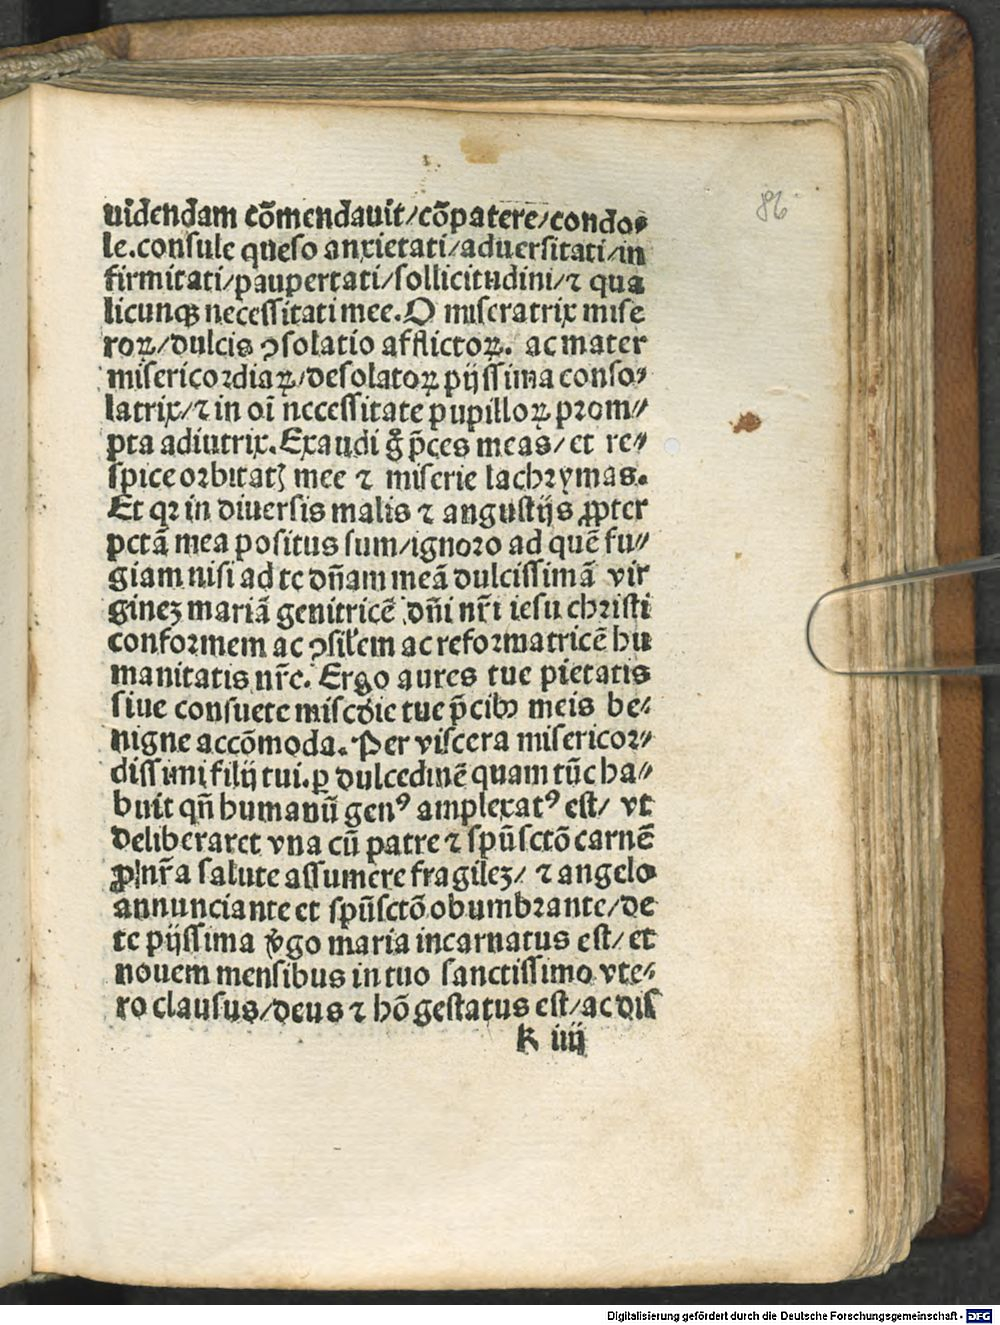 86
uidendam cōmendauit/cōpatere/condo⸗
le.consule queso anxietati/aduersitati/in
firmitati/paupertati/sollicitudini/⁊ qua
licunqꝫ necessitati mee. O miseratrix mise
roꝝ/dulcis ꝯsolatio afflictoꝝ. ac mater
misericordiaꝝ/desolatoꝝ pijssima conso⸗
latrix/⁊ in oī necessitate pupilloꝝ prom⸗
pta adiutrix. Exaudi gͦ p̄ces meas/et re⸗
spice orbitatꝭ mee ⁊ miserie lachrymas.
Et qꝛ in diuersis malis ⁊ angustijs ꝓpter
pctā mea positus sum/ignoro ad quē fu⸗
giam nisi ad te dn̄am meā dulcissimā vir
gineꝫ mariā genitricē dn̄i nr̄i iesu christi
conformem ac ꝯsil'em ac reformatricē hu
manitatis nr̄e. Ergo aures tue pietatis
siue consuete miscd̓ie tue p̄cibꝰ meis be⸗
nigne accōmoda. Per viscera misericor⸗
dissimi filij tui.ꝑ dulcedinē quam tūc ha⸗
buit qn̄ humanū genꝰ amplexatꝰ est/ vt
deliberaret vna cū patre ⁊ spūsctō carnē
ꝓ nr̄a salute assumere fragileꝫ/ ⁊ angelo
annunciante et spūsctō obumbrante/de
te pijssima v̓go maria incarnatus est/ et
nouem mensibus in tuo sanctissimo vte⸗
ro clausus/deus ⁊ hō gestatus est/ac dis
k iiij
Digitalisierung gefördert durch die Deutsche Forschungsgemeinschaft - DFG